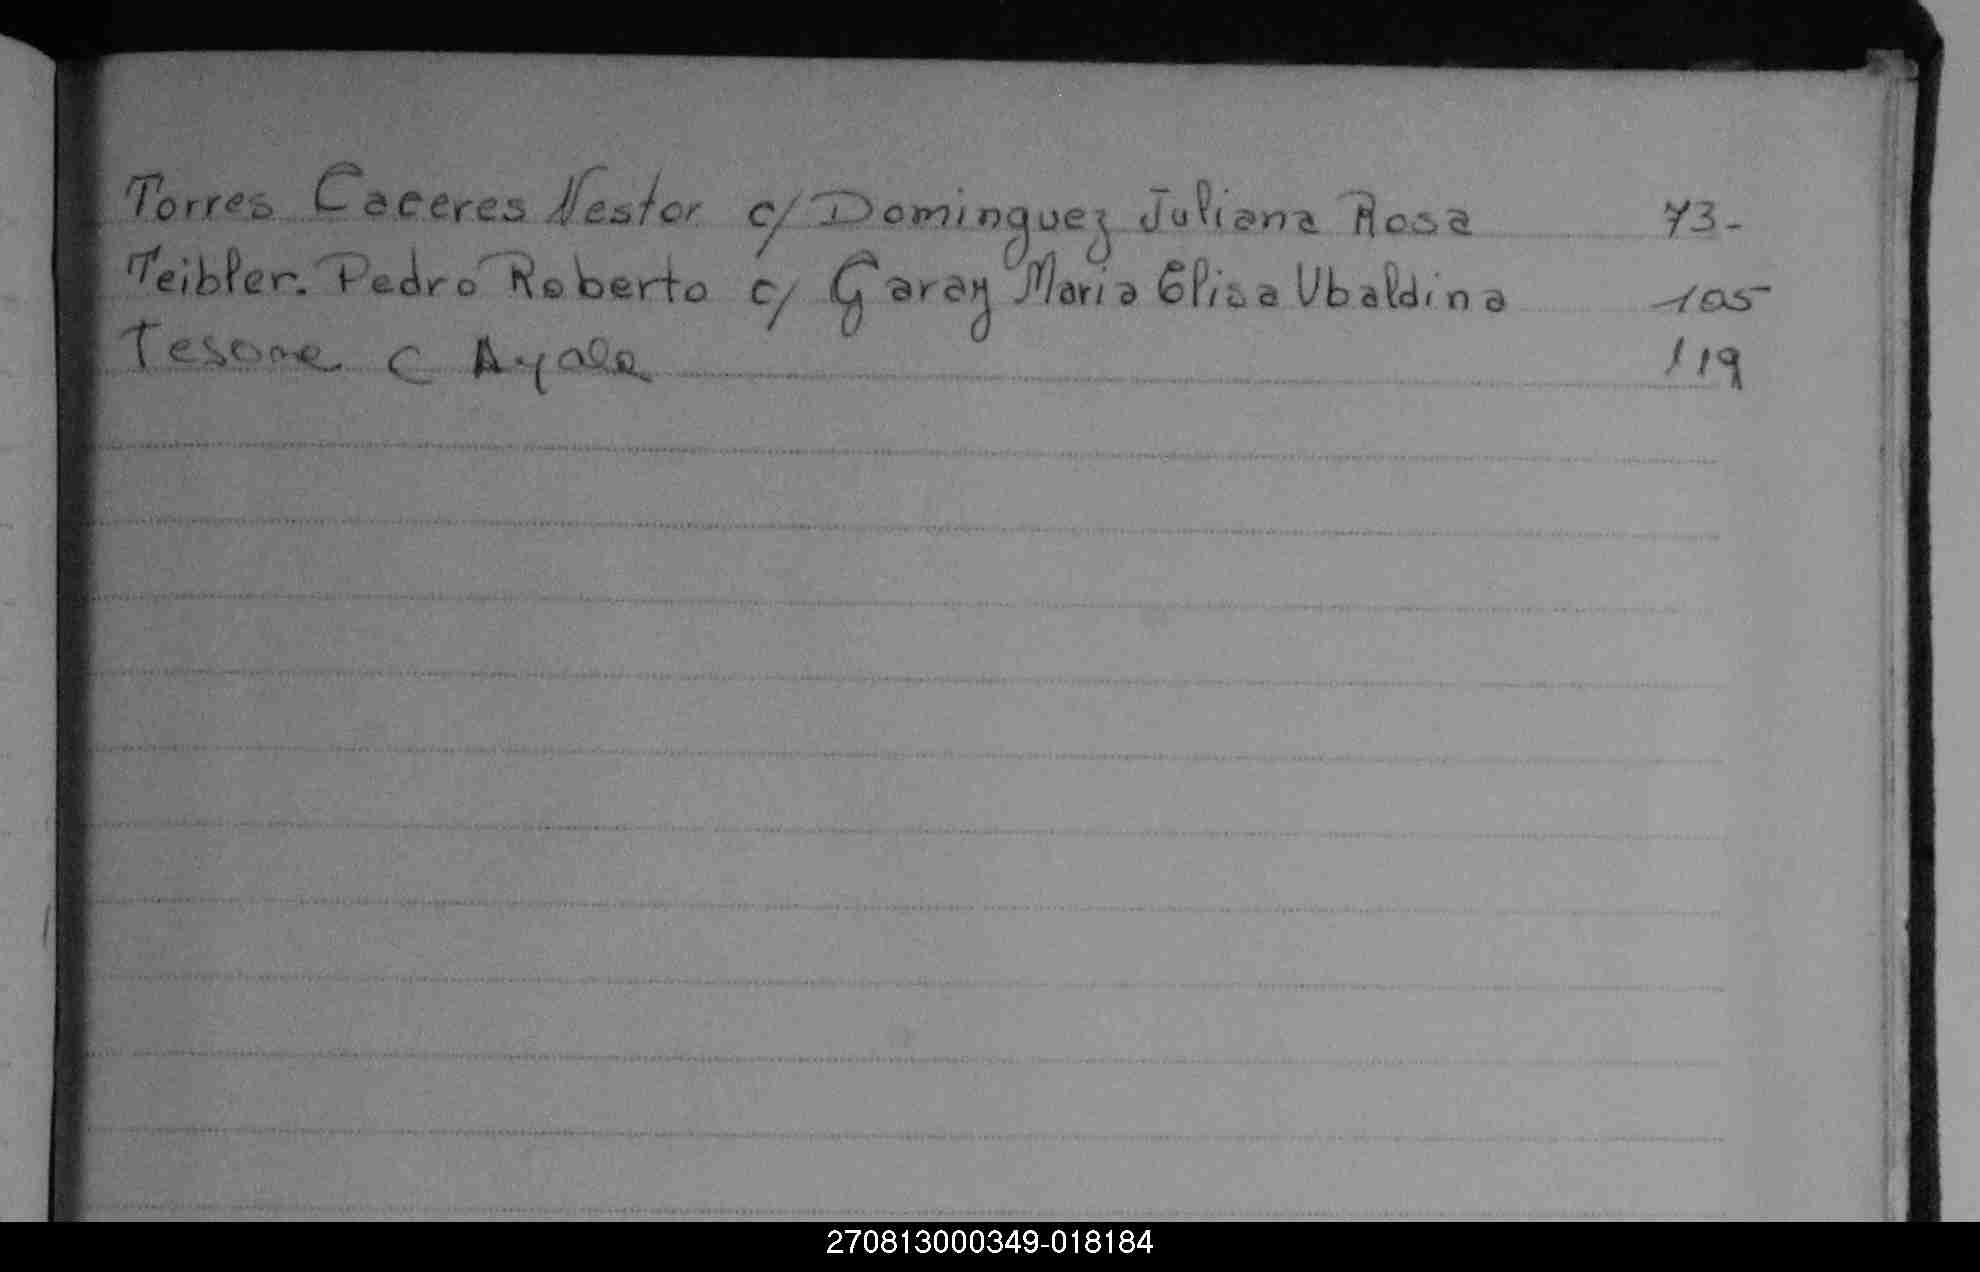 Torres Caceres Nestor c/ Dominguez Juliana Rosa 73-
Teibler. Pedro Roberto c/ Garay Maria Elisa Ubaldina 105
Tesone c Ayala 119
270813000349-018184